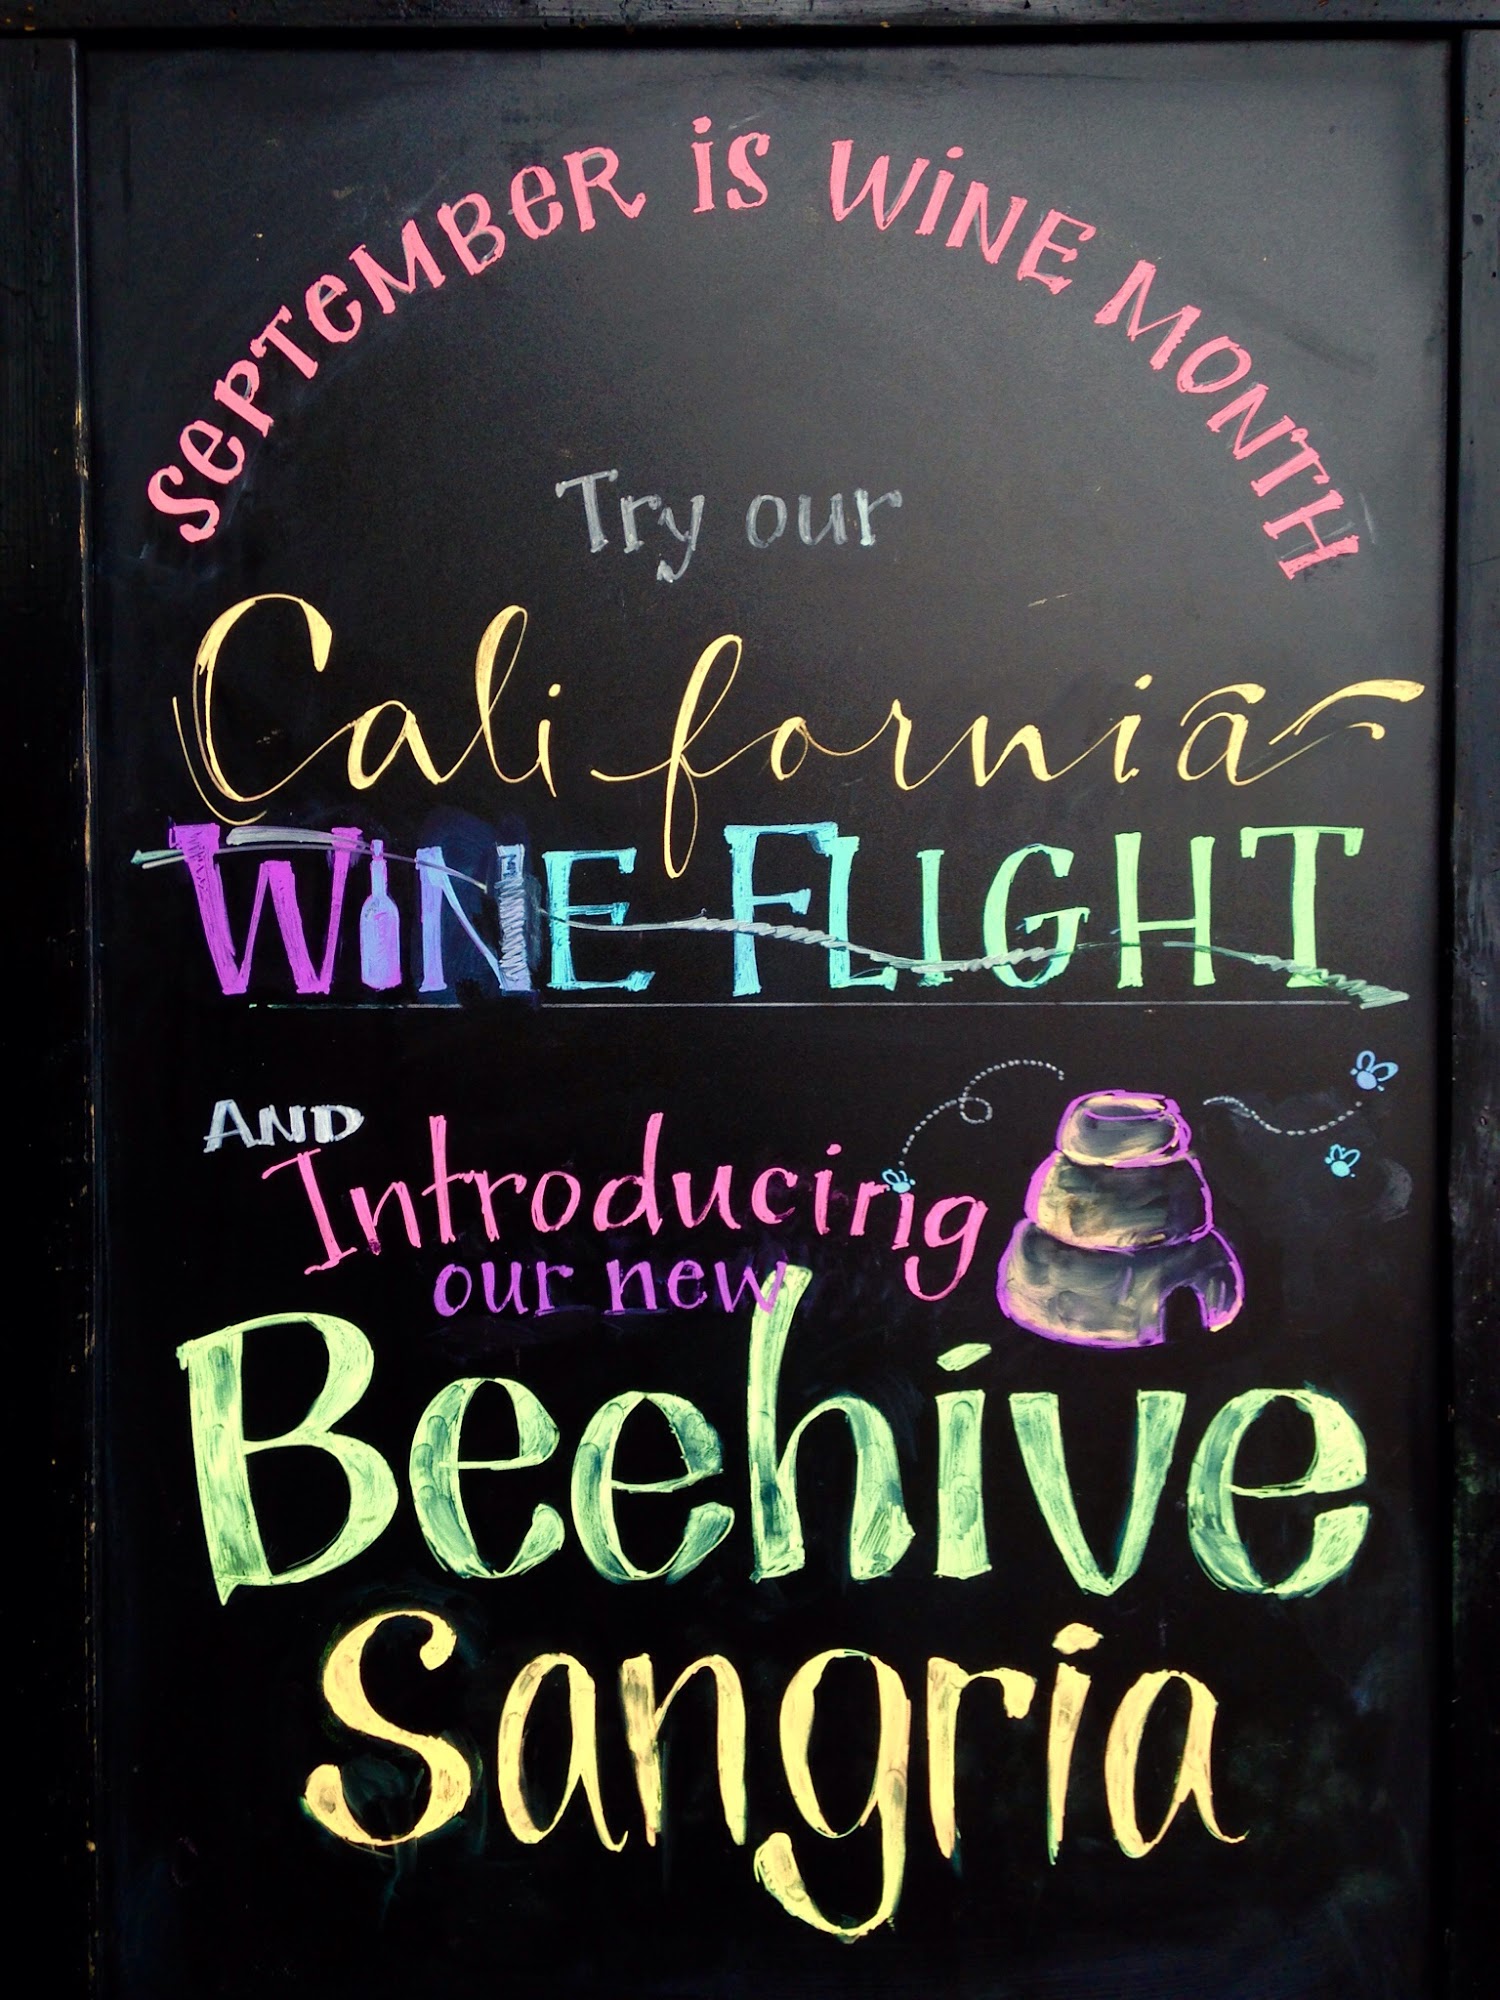 SEPTEMBER IS WINE MONTH
Try our
California
WINE FLIGHT
AND
Introducing
our new
Beehive
Sangria